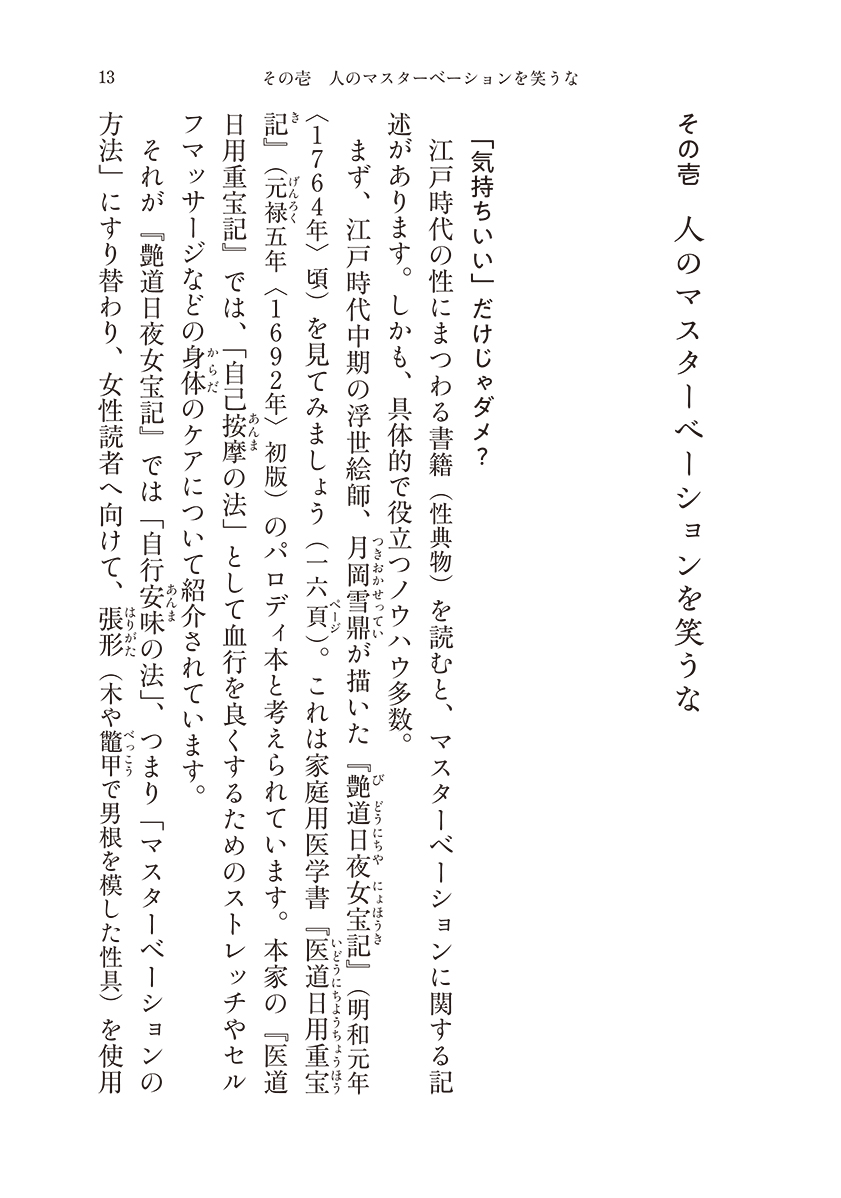 13
その壱　人のマスターベーションを笑うな
その壱　人のマスターベーションを笑うな
「気持ちいい」だけじゃダメ？
江戸時代の性にまつわる書籍（性典物）を読むと、マスターベーションに関する記
述があります。しかも、具体的で役立つノウハウ多数。
まず、江戸時代中期の浮世絵師、月岡雪鼎が描いた『艶道日夜女宝記』（明和元年
つきおかせってい
び　どうにちや　にょほうき
〈1764年〉頃）を見てみましょう（一六頁）。これは家庭用医学書『医道日用重宝
ページ
いどうにちようちょうほう
記』（元禄五年〈1692年〉初版）のパロディ本と考えられています。本家の『医道
き
げんろく
日用重宝記』では、「自己按摩の法」として血行を良くするためのストレッチやセル
あんま
フマッサージなどの身体のケアについて紹介されています。
からだ
それが『艶道日夜女宝記』では「自行安味の法」、つまり「マスターベーションの
あんま
方法」にすり替わり、女性読者へ向けて、張形（木や鼈甲で男根を模した性具）を使用
はりがた
べっこう